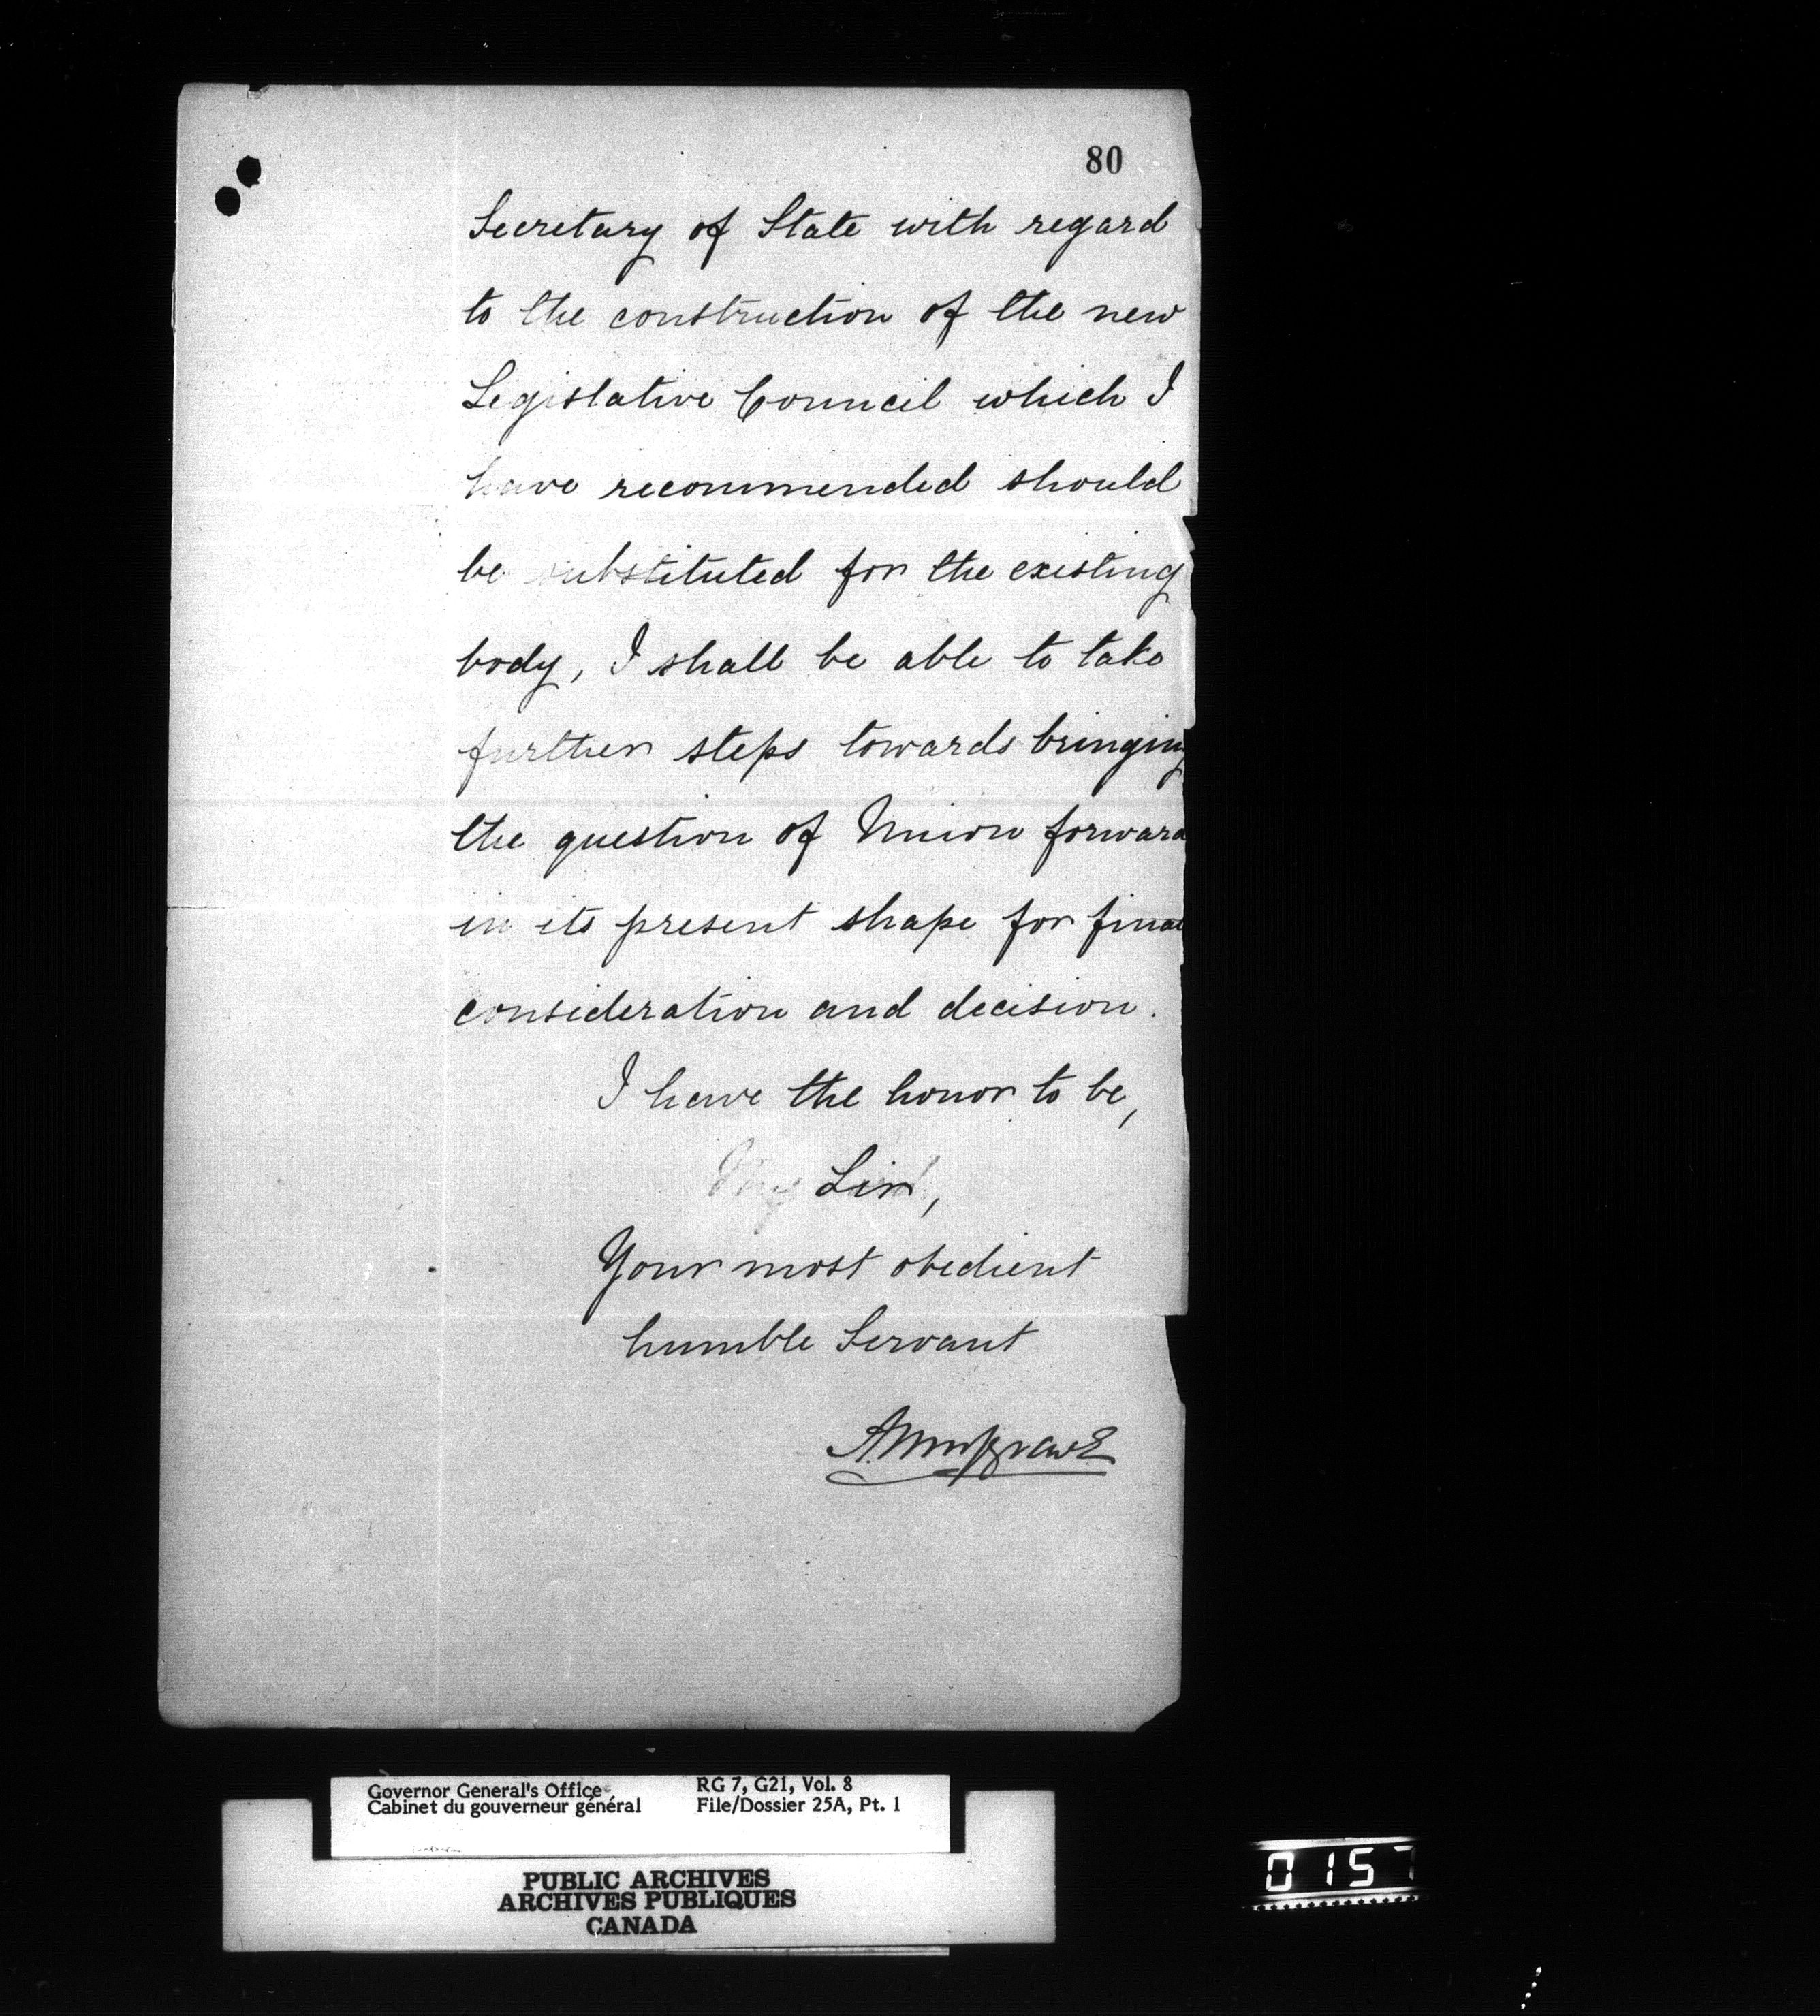 80
Secretary of State with regard
to the construction of the new
Legislative Council which I
have recommended should
be substituted for the existing
body, I shall be able to take
further steps towards bringing
the question of Union forward
in its present shape for final
consideration and decision.
I have the honor to be,
Sir,
Your most obedient
humble Servant
A. Musgrave
Governor General's Office
Cabinet du gouverneur général
RG 7, G21, Vol. 8
File/Dossier 25A, Pt. 1
PUBLIC ARCHIVES
ARCHIVES PUBLIQUES
CANADA
0157